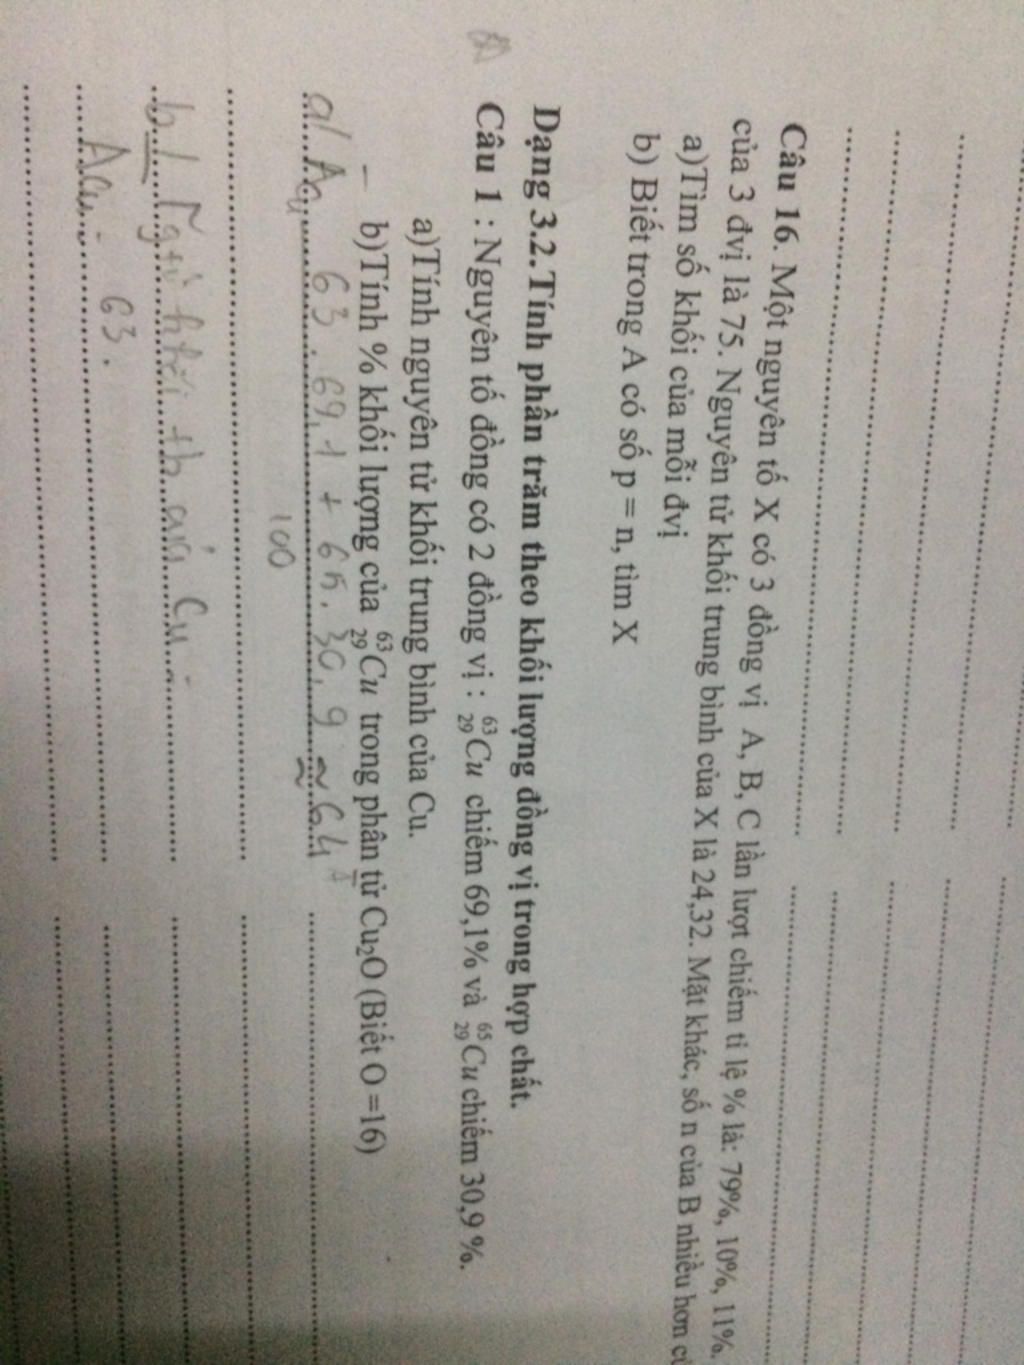 Câu 16. Một nguyên tố X có 3 đồng vị A, B, C lần lượt chiếm tỉ lệ % là: 79%, 10%, 11%.
của 3 đvị là 75. Nguyên tử khối trung bình của X là 24,32. Mặt khác, số n của B nhiều hơn
a)Tìm số khối của mỗi đvị
b) Biết trong A có số p = n, tìm X
Dạng 3.2.Tính phần trăm theo khối lượng đồng vị trong hợp chất.
Câu 1 : Nguyên tố đồng có 2 đồng vị : ⁶³₂₉Cu chiếm 69,1% và ⁶⁵₂₉Cu chiếm 30,9 %.
a)Tính nguyên tử khối trung bình của Cu.
b)Tính % khối lượng của ⁶³₂₉Cu trong phân tử Cu₂O (Biết O =16)
a/ Acu 63.69,1 + 65.30,9 ≈ 64
100
b/ Cu
Acu 63.